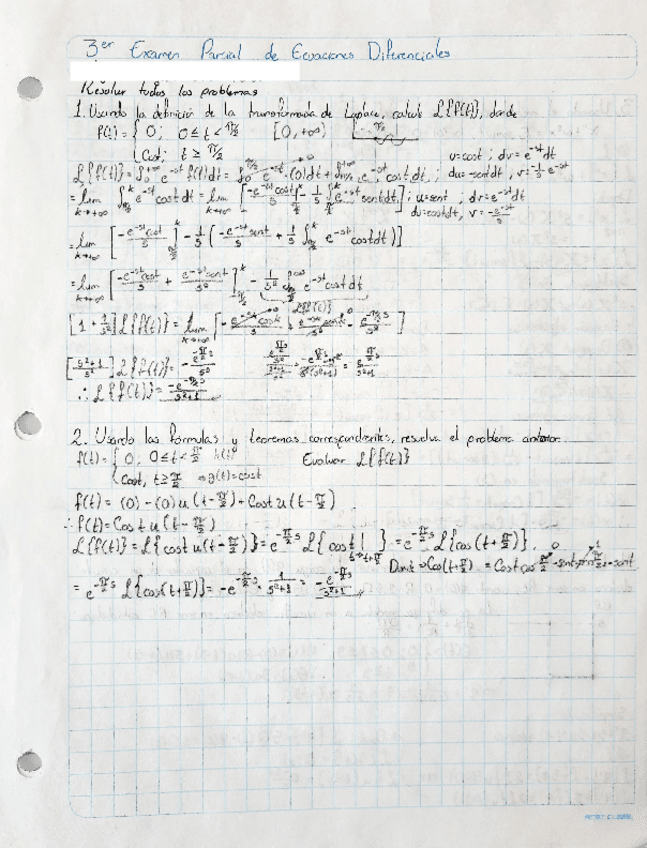 3er Examen Parcial de Ecuaciones Diferenciales
Resolver todos los problemas
1. Usando la definición de la transformada de Laplace, calcule ℒ{f(t)}, donde
f(t) = { 0; 0 ≤ t < π/2 [0, +∞)
Cost; t ≥ π/2
ℒ{f(t)} = ∫₀^{+∞} e^{-st} f(t)dt = e^{-st}·(0)dt + e^{-st} cost dt; u = cost; dv = e^{-st}dt
du = -sent dt, v = -1/s e^{-st}
= lim k→+∞ ∫_{π/2}^k e^{-st} cost dt = lim k→+∞ [-e^{-st}cost/s |^k - 1/s ∫^k e^{-st} sent dt]; u = sent; dv = e^{-st}dt
du = cost dt, v = -e^{-st}/s
= lim k→+∞ [-e^{-st}cost/s ]^k - 1/s (-e^{-st}sent/s + 1/s ∫_{π/2}^k e^{-st} cost dt)]
= lim k→+∞ [-e^{-st}cost/s + e^{-st}sent/s²]^k_{π/2} - 1/s² e^{-st} cost dt
ℒ{f(t)}
[1 + 1/s²] ℒ{f(t)} = lim k→+∞ [ - e^{-πs/2}/s² ]
[s²+1/s²] ℒ{f(t)} = -e^{-πs/2}/s²
∴ ℒ{f(t)} = -e^{-π/2 s}/s²+1
2. Usando las fórmulas y teoremas correspondientes, resuelva el problema anterior.
f(t) = { 0, 0 ≤ t < π/2 Evaluar ℒ{f(t)}
Cost, t ≥ π/2 → g(t) = cost
f(t) = (0) - (0) u (t - π/2) + Cost u (t - π/2)
∴ f(t) = Cos t u (t - π/2)
ℒ{f(t)} = ℒ{cost u(t - π/2)} = e^{-π/2 s} ℒ{cost | t→t+π/2} = e^{-π/2 s} ℒ{cos (t + π/2)}.
Cos(t + π/2) = Cost cos π/2 - sent sen π/2 = -sent
= e^{-π/2 s} ℒ{cos(t + π/2)} = -e^{-π/2 s} · 1/s²+1 = -e^{-π/2 s}/s²+1